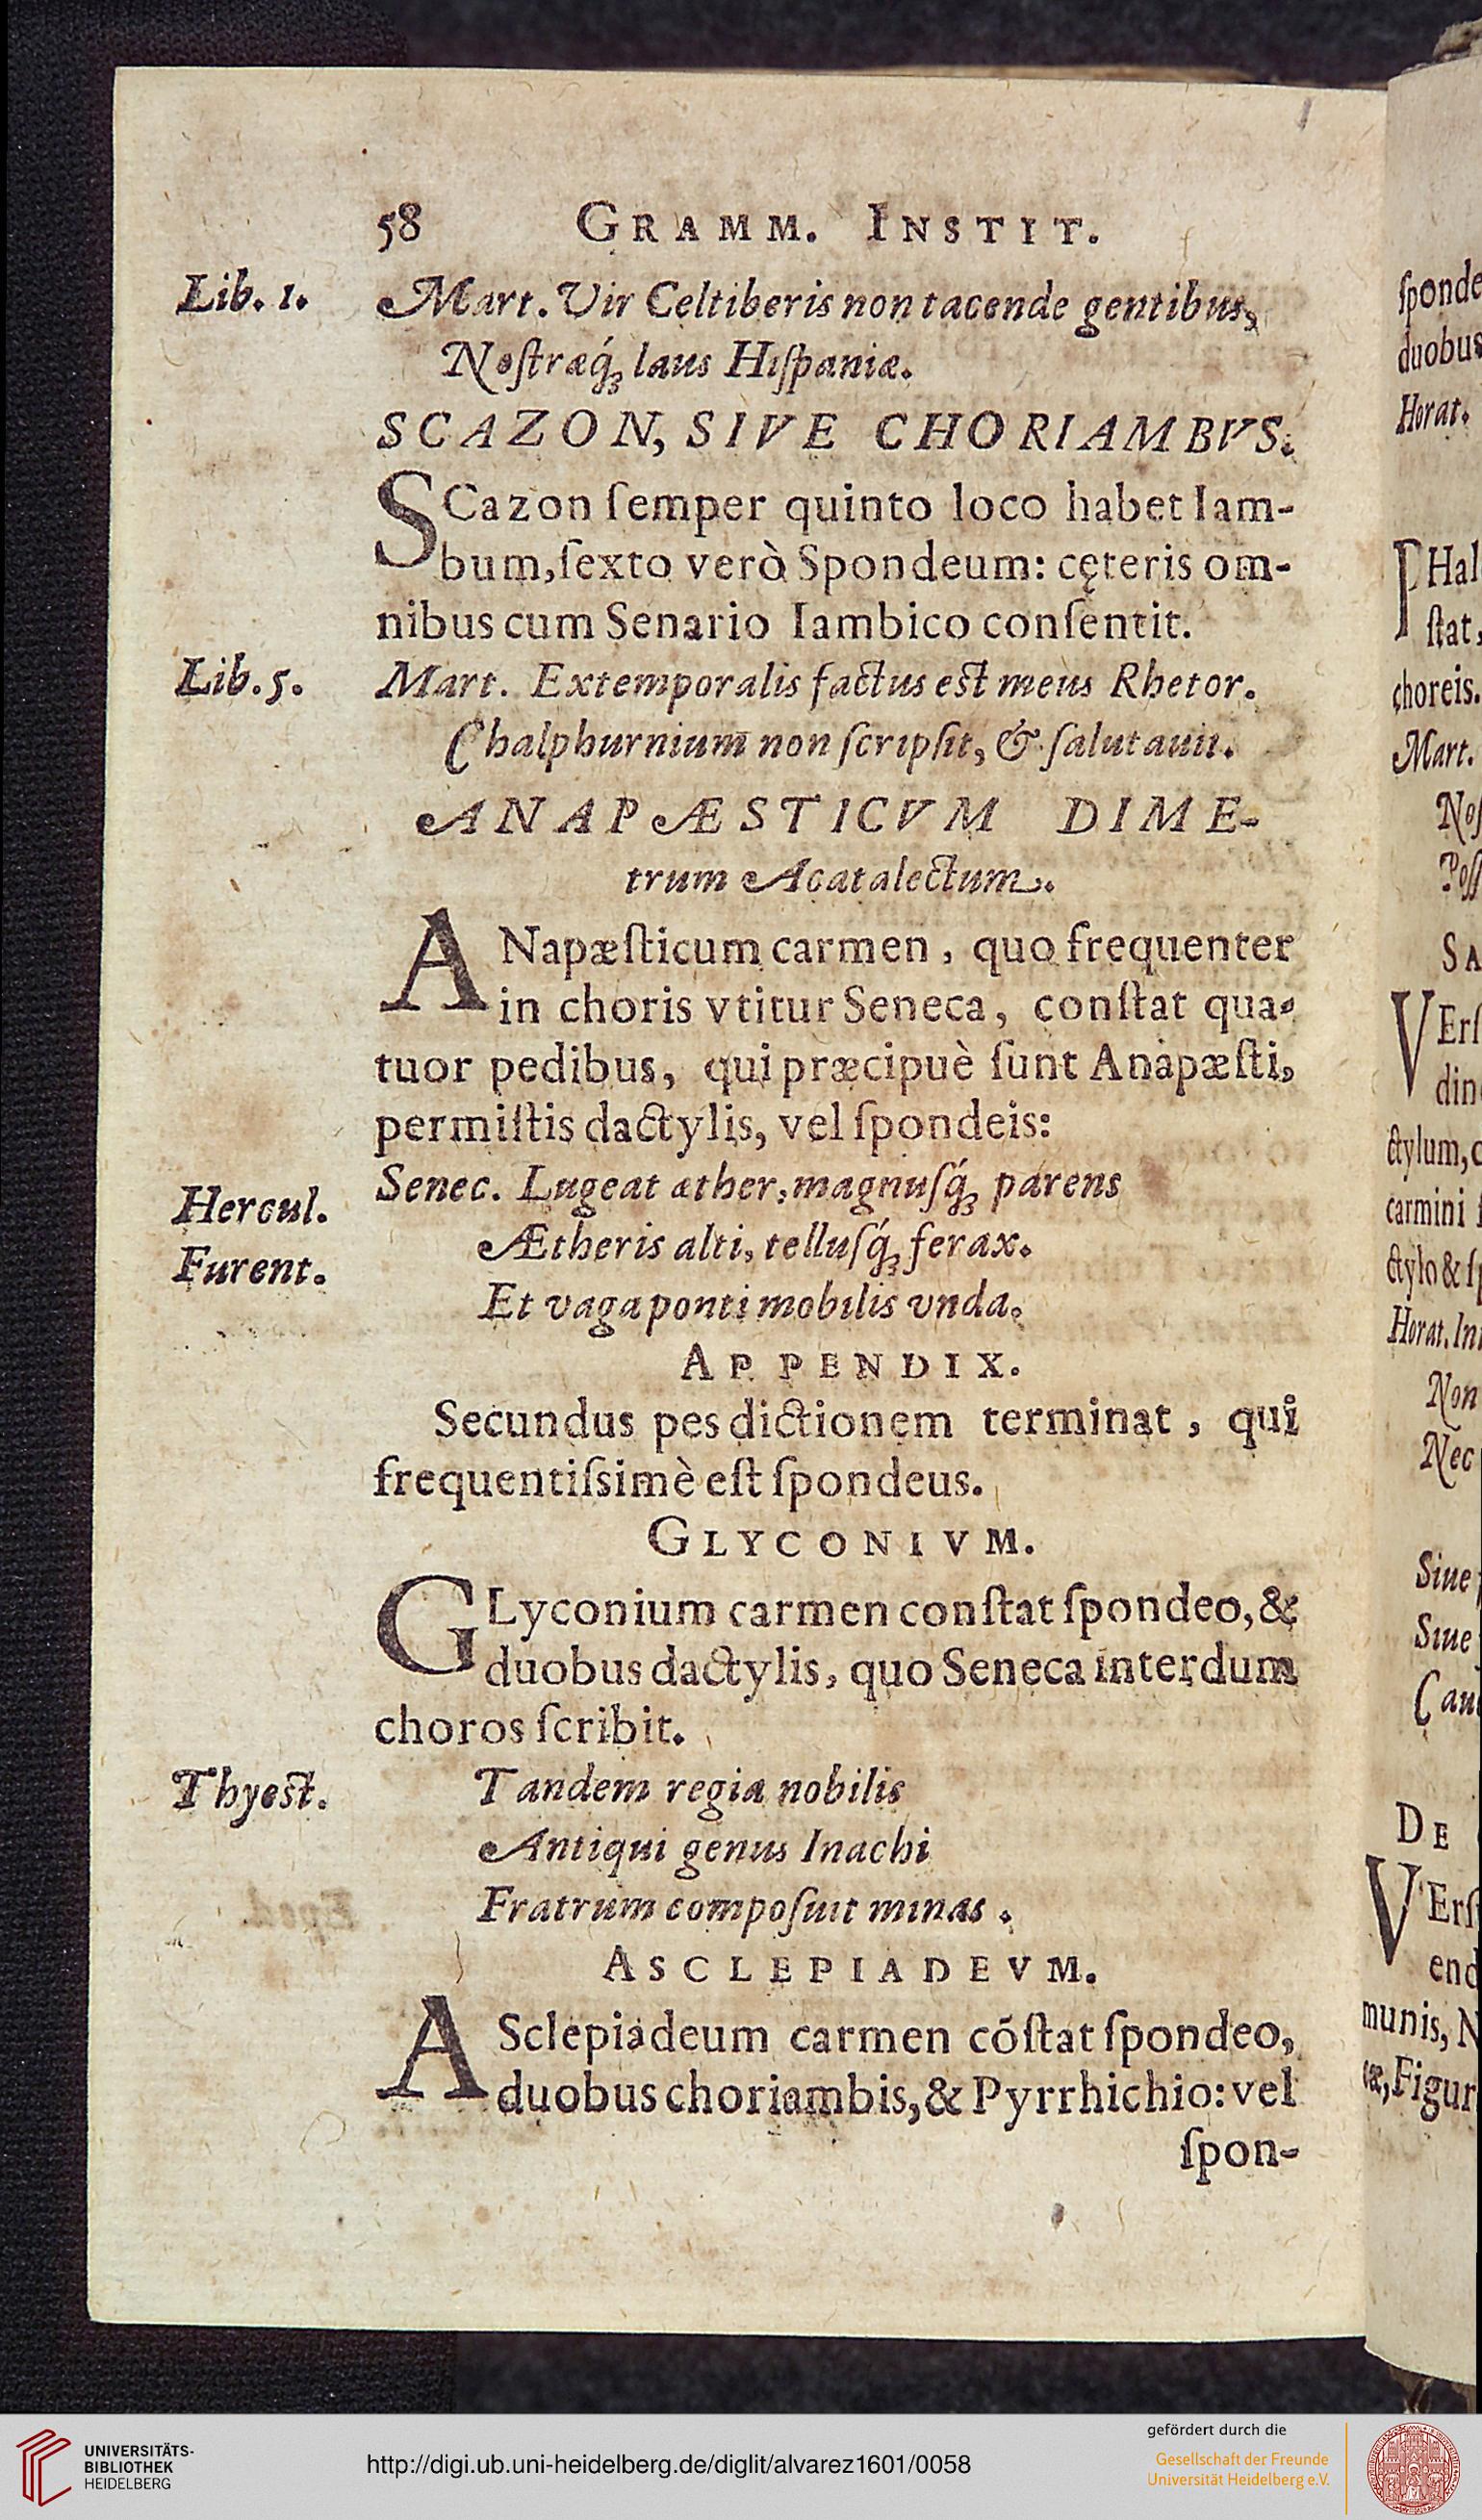 58 GRAMM. INSTIT.
Lib. 1.
Mart. Vir Celtiberis non tacende gentibus,
Noſtræq́ꝫ laus Hiſpaniæ.
SCAZON, SIVE CHORIAMBVS.
SCazon ſemper quinto loco habet Iam-
bum, ſexto verò Spondeum: cęteris om-
nibus cum Senario Iambico conſentit.
Lib. 5.
Mart. Extemporalis factus eſt meus Rhetor.
Chalphurnium non ſcripſit, & ſalutauit.
ANAPÆSTICVM DIME-
trum Acatalectum.
ANapæſticum carmen, quo frequenter
in choris vtitur Seneca, conſtat qua-
tuor pedibus, qui præcipuè ſunt Anapæſti,
permiſtis dactylis, vel ſpondeis:
Hercul.
Furent.
Senec. Lugeat æther, magnuſq́ꝫ parens
Ætheris alti, telluſq́ꝫ ferax.
Et vaga ponti mobilis vnda.
APPENDIX.
Secundus pes dictionem terminat, qui
frequentiſsimè eſt ſpondeus.
GLYCONIVM.
GLyconium carmen conſtat ſpondeo, &
duobus dactylis, quo Seneca interdum
choros ſcribit.
Thyeſt.
Tandem regia nobilis
Antiqui genus Inachi
Fratrum compoſuit minas.
ASCLEPIADEVM.
ASclepiadeum carmen cōſtat ſpondeo,
duobus choriambis, & Pyrrhichio: vel
ſpon-
ſponde
duobus
Horat.
PHal
ſtat,
choreis.
Mart.
Noſ
Poſſ
SA
VErſ
din
ctylum, c
carmini
ctylo & ſp
Horat. In
Non
Nec
Siue
Siue
Cau
DE
VErſ
end
munis, N
cæ, Figur
UNIVERSITÄTS-
BIBLIOTHEK
HEIDELBERG
http://digi.ub.uni-heidelberg.de/diglit/alvarez1601/0058
gefördert durch die
Gesellschaft der Freunde
Universität Heidelberg e.V.